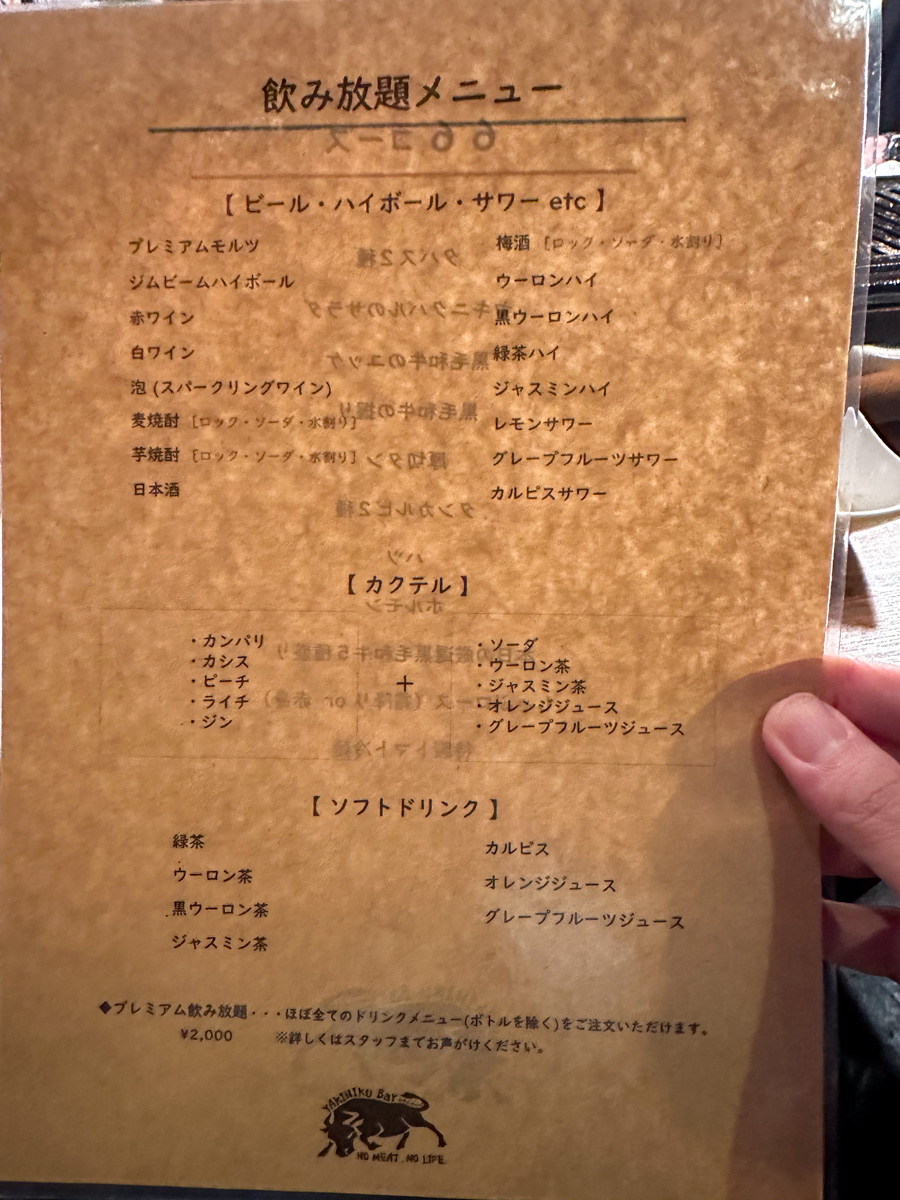 飲み放題メニュー
66コース
【 ビール・ハイボール・サワー etc 】
プレミアムモルツ
ジムビームハイボール
赤ワイン
白ワイン
泡 (スパークリングワイン)
麦焼酎 [ロック・ソーダ・水割り]
芋焼酎 [ロック・ソーダ・水割り]
日本酒
梅酒 [ロック・ソーダ・水割り]
ウーロンハイ
黒ウーロンハイ
緑茶ハイ
ジャスミンハイ
レモンサワー
グレープフルーツサワー
カルピスサワー
タパス2種
黒毛和牛のユッケ
黒毛和牛の握り
厚切タン
タンカルビ2種
ハツ
ホルモン
【 カクテル 】
・カンパリ
・カシス
・ピーチ
・ライチ
・ジン
+
・ソーダ
・ウーロン茶
・ジャスミン茶
・オレンジジュース
・グレープフルーツジュース
【 ソフトドリンク 】
緑茶
ウーロン茶
黒ウーロン茶
ジャスミン茶
カルピス
オレンジジュース
グレープフルーツジュース
◆プレミアム飲み放題・・・ほぼ全てのドリンクメニュー(ボトルを除く)をご注文いただけます。
¥2,000 ※詳しくはスタッフまでお声がけください。
YAKINIKU Bar
NO MEAT. NO LIFE.